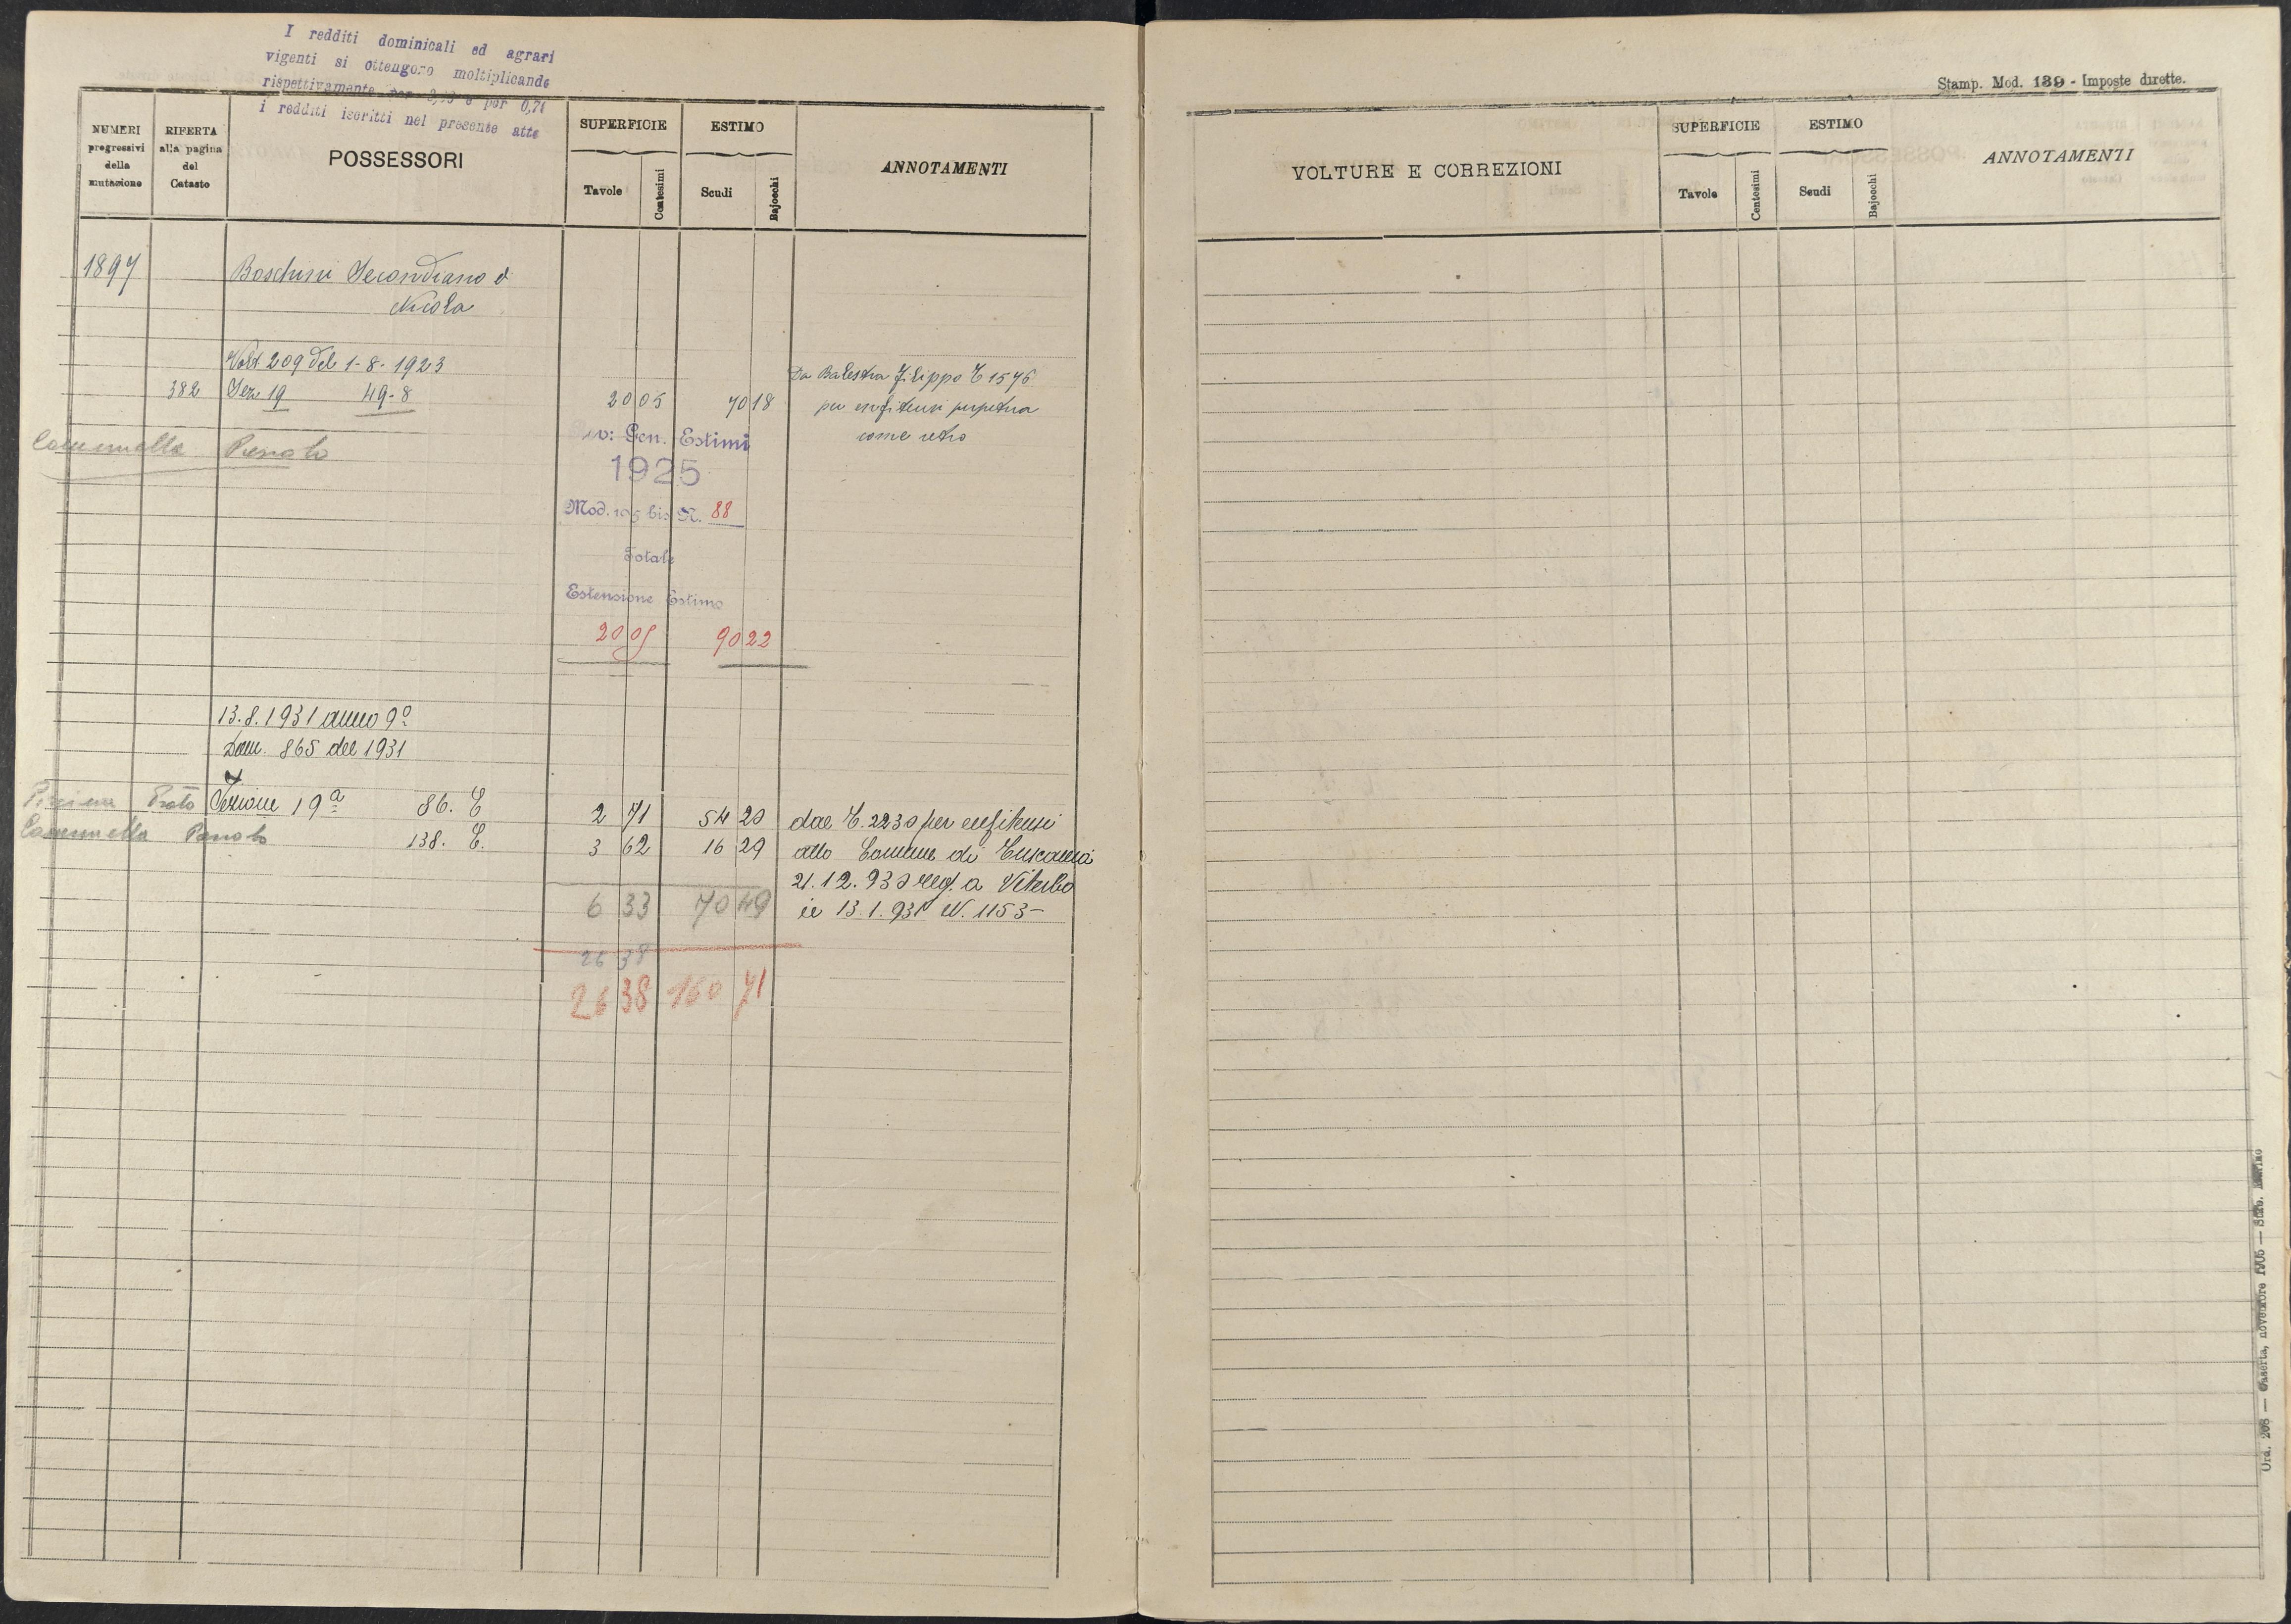 I redditi dominicali ed agrari
vigenti si ottengono moltiplicando
rispettivamente per e per 0,74
i redditi iscritti nel presente atto
NUMERI progressivi della mutazione
RIFERTA alla pagina del Catasto
POSSESSORI
SUPERFICIE
Tavole
Centesimi
ESTIMO
Scudi
Bajocchi
ANNOTAMENTI
1897
Boschini Secondiano d
Nicola
Volt 209 del 1-8-1923
Da Balestra Filippo C 1576
382 Sez 19 49-8 20 05 70 18 per enfiteusi perpetua
come retro
Cacunnella Piena to
Rev: Gen. Estimi
1925
Mod. 105 bis N. 88
Totale
Estensione Estimo
20 05 90 22
13.8.1931 anno 9º
Dom. 865 del 1931
Sezione 19ª 86. E 2 71 54 20 dal C. 2230 per enfiteusi
138. E. 3 62 16 29 atto Comune di Tuscania
21.12.930 reg. a Viterbo
6 33 70 49 il 13.1.931 N. 1153-
26 38
26 38 160 71
Stamp. Mod. 139 - Imposte dirette.
VOLTURE E CORREZIONI
SUPERFICIE
Tavole
Centesimi
ESTIMO
Scudi
Bajocchi
ANNOTAMENTI
Ord. 208 — Caserta, novembre 1905 — Stab. Marino